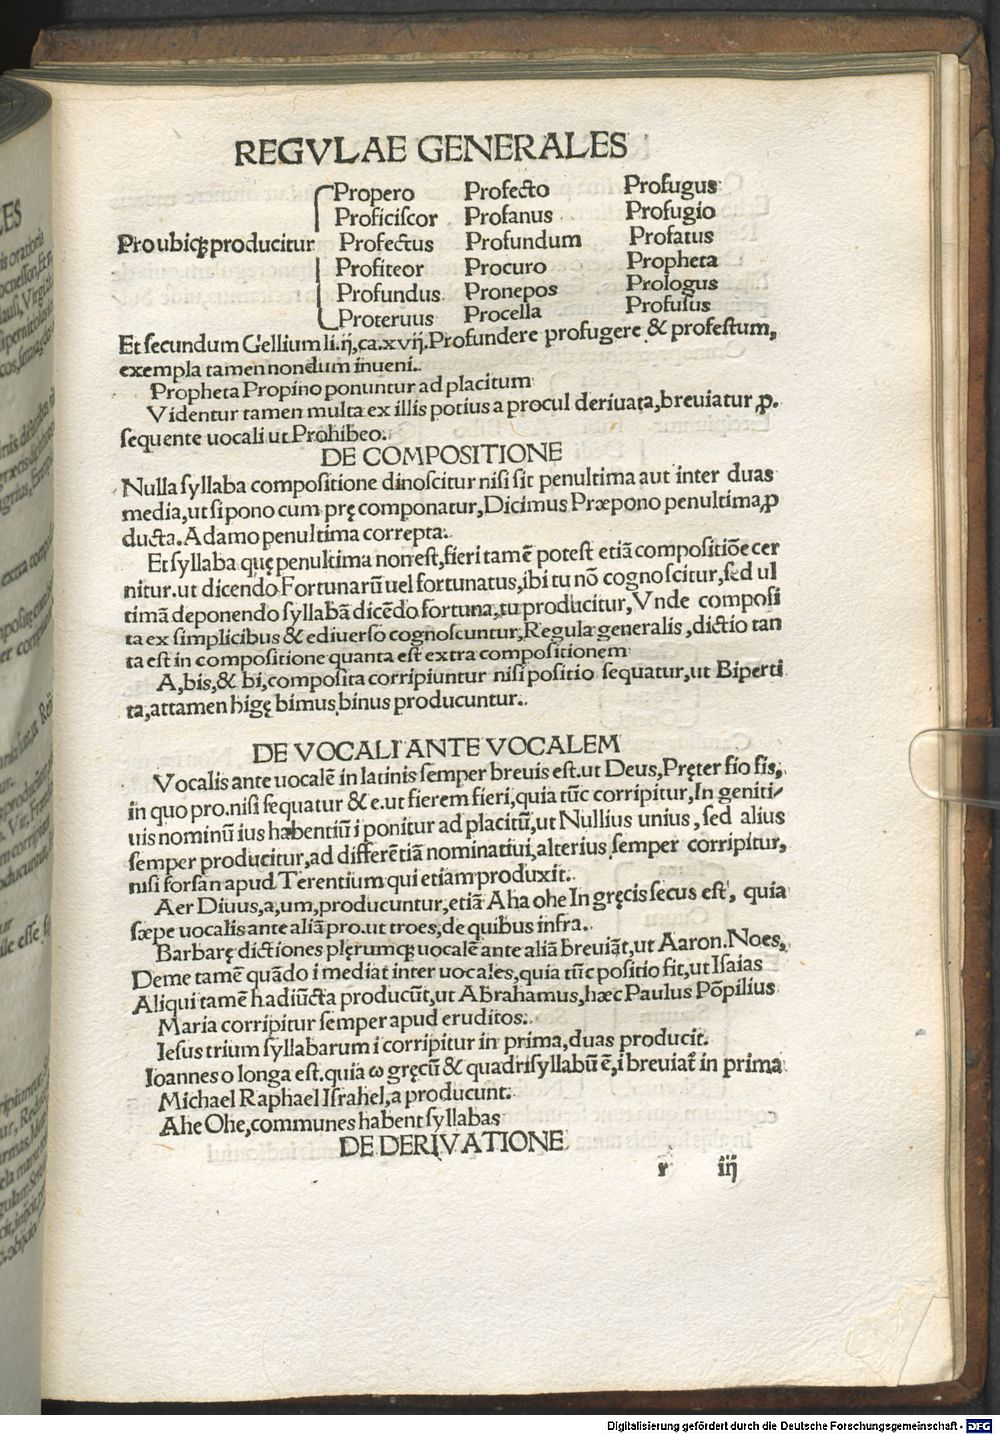 REGVLAE GENERALES
Propero Profecto Profugus
Proficiscor Profanus Profugio
Pro ubiqꝫ producitur Profectus Profundum Profatus
Profiteor Procuro Propheta
Profundus Pronepos Prologus
Proteruus Procella Profusus
Et secundum Gellium li.ij,ca.xvij.Profundere profugere & profestum,
exempla tamen nondum inueni..
Propheta Propino ponuntur ad placitum
Videntur tamen multa ex illis potius a procul deriuata,breuiatur ꝓ.
sequente uocali ut Prohibeo..
DE COMPOSITIONE
Nulla syllaba compositione dinoscitur nisi sit penultima aut inter duas
media,ut si pono cum prę componatur,Dicimus Præpono penultima,ꝓ
ducta.Adamo penultima correpta..
Et syllaba quę penultima non est,fieri tamē potest etiā compositiōe cer
nitur.ut dicendo Fortunarū uel fortunatus,ibi tu nō cognoscitur,sed ul
timā deponendo syllabā dicēdo fortuna,tu producitur,Vnde composi
ta ex simplicibus & ediuerso cognoscuntur,Regula generalis,dictio tan
ta est in compositione quanta est extra compositionem
A,bis,& bi,composita corripiuntur nisi positio sequatur,ut Biperti
ta,attamen bigę bimus binus producuntur..
DE VOCALI ANTE VOCALEM
Vocalis ante uocalē in latinis semper breuis est.ut Deus,Pręter fio fis,
in quo pro.nisi sequatur & e.ut fierem fieri,quia tūc corripitur,In geniti
uis nominū ius habentiū i ponitur ad placitū,ut Nullius unius,sed alius
semper producitur,ad differētiā nominatiui,alterius semper corripitur,
nisi forsan apud Terentium qui etiam produxit..
Aer Diuus,a,um,producuntur,etiā Aha ohe In gręcis secus est, quia
sæpe uocalis ante aliā pro.ut troes,de quibus infra..
Barbarę dictiones plęrumqꝫ uocalē ante aliā breuiāt,ut Aaron.Noes,
Deme tamē quādo i mediat inter uocales,quia tūc positio fit,ut Isaias
Aliqui tamē h adiūcta producūt,ut Abrahamus,hæc Paulus Pōpilius
Maria corripitur semper apud eruditos..
Iesus trium syllabarum i corripitur in prima,duas producit.
Ioannes o longa est.quia ω gręcū & quadrisyllabū ē,i breuiat̄ in prima
Michael Raphael Israhel,a producunt..
Ahe Ohe,communes habent syllabas
DE DERIVATIONE
r iij
Digitalisierung gefördert durch die Deutsche Forschungsgemeinschaft - DFG